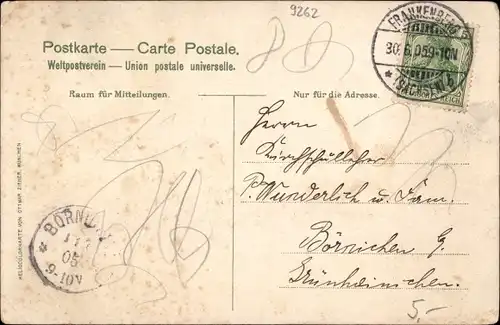 9262
Postkarte — Carte Postale.
Weltpostverein — Union postale universelle.
FRANKENBERG
30.6.05 9-10N
* (SACHSEN) b
REICH
Raum für Mitteilungen.
Nur für die Adresse.
Herrn
Kirchschullehrer
P. Wunderlich u. Fam.
Börnichen b.
Grünhainichen.
BÖRNICHEN
05
9-10V
HELIOCOLORKARTE VON OTTMAR ZIEHER, MÜNCHEN
5-